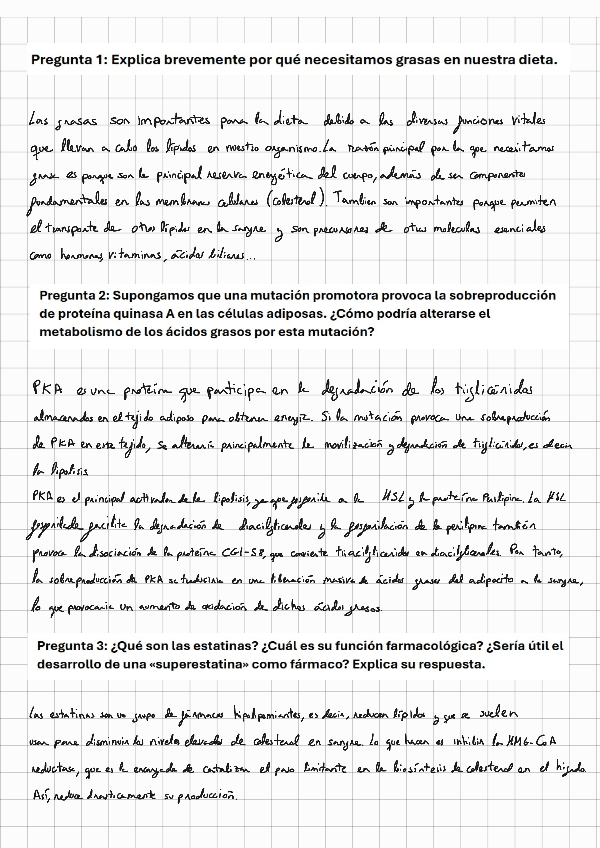 Pregunta 1: Explica brevemente por qué necesitamos grasas en nuestra dieta.
Las grasas son importantes para la dieta debido a las diversas funciones vitales
que llevan a cabo los lípidos en nuestro organismo. La razón principal por la que necesitamos
grasa es porque son la principal reserva energética del cuerpo, además de ser componentes
fundamentales en las membranas celulares (colesterol). Tambien son importantes porque permiten
el transporte de otros lípidos en la sangre y son precursores de otras moleculas esenciales
como hormonas, vitaminas, ácidos biliares...
Pregunta 2: Supongamos que una mutación promotora provoca la sobreproducción
de proteína quinasa A en las células adiposas. ¿Cómo podría alterarse el
metabolismo de los ácidos grasos por esta mutación?
PKA es una proteína que participa en la degradación de los triglicéridos
almacenados en el tejido adiposo para obtener energía. Si la mutación provoca una sobreproducción
de PKA en este tejido, se alteraría principalmente la movilización y degradación de triglicéridos, es decir
la lipolisis
PKA es el principal activador de la lipolisis, ya que fosforila a la HSL y la proteína Perilipina. La HSL
fosforilada facilita la degradación de diacilglicerales y la fosforilación de la perilipina también
provoca la disociación de la proteína CGI-58, que convierte triacilglicéridos en diacilglicerales. Por tanto,
la sobreproducción de PKA se traduciría en una liberación masiva de ácidos grasos del adipocito a la sangre,
lo que provocaría un aumento de oxidación de dichos ácidos grasos.
Pregunta 3: ¿Qué son las estatinas? ¿Cuál es su función farmacológica? ¿Sería útil el
desarrollo de una «superestatina» como fármaco? Explica su respuesta.
Las estatinas son un grupo de fármacos hipolipemiantes, es decir, reducen lípidos y que se suelen
usar para disminuir los niveles elevados de colesterol en sangre. Lo que hacen es inhibir la HMG-CoA
reductasa, que es la encargada de catalizar el paso limitante en la biosíntesis de colesterol en el hígado.
Así, reduce drasticamente su producción.